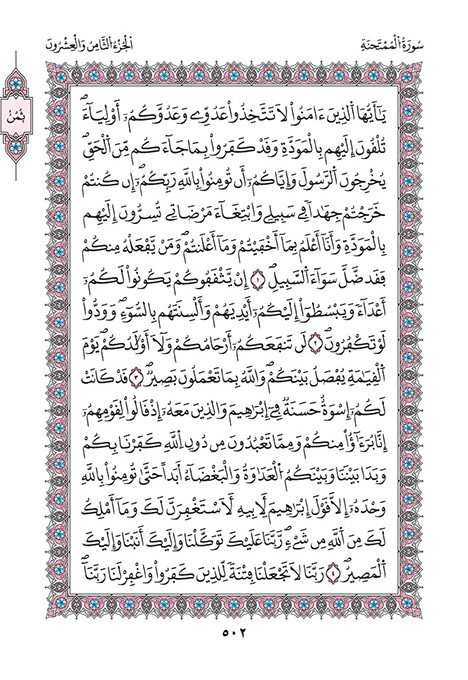 سُورَةُ الْمُمْتَحَنَةِ
الْجُزْءُ الثَّامِنُ وَالْعِشْرُونَ
ثُمُنُ
يَٰٓأَيُّهَا اَ۬لذِينَ ءَامَنُواْ لَا تَتَّخِذُواْ عَدُوِّے وَعَدُوَّكُمُۥٓ أَوْلِيَآءَ
تُلْقُونَ إِلَيْهِم بِالْمَوَدَّةِ وَقَدْ كَفَرُواْ بِمَا جَآءَكُم مِّنَ اَ۬لْحَقِّ
يُخْرِجُونَ اَ۬لرَّسُولَ وَإِيَّاكُمُۥٓ أَن تُومِنُواْ بِاللَّهِ رَبِّكُمُۥٓ إِن كُنتُمْ
خَرَجْتُمْ جِهَٰداٗ فِے سَبِيلِے وَابْتِغَآءَ مَرْضَاتِے تُسِرُّونَ إِلَيْهِم
بِالْمَوَدَّةِ وَأَنَآ أَعْلَمُ بِمَآ أَخْفَيْتُمْ وَمَآ أَعْلَنتُمْ وَمَنْ يَّفْعَلْهُ مِنكُمْ
فَقَد ضَّلَّ سَوَآءَ اَ۬لسَّبِيلِ ۝١ إِنْ يَّثْقَفُوكُمْ يَكُونُواْ لَكُمُۥٓ
أَعْدَآءٗ وَيَبْسُطُوٓاْ إِلَيْكُمُۥٓ أَيْدِيَهُمْ وَأَلْسِنَتَهُم بِالسُّوٓءِ وَوَدُّواْ
لَوْ تَكْفُرُونَ ۝٢ لَن تَنفَعَكُمُۥٓ أَرْحَامُكُمْ وَلَآ أَوْلَٰدُكُمْ يَوْمَ
اَ۬لْقِيَٰمَةِ يُفْصَلُ بَيْنَكُمْ وَاللَّهُ بِمَا تَعْمَلُونَ بَصِيرٌ ۝٣ قَدْ كَانَتْ
لَكُمُۥٓ إِسْوَةٌ حَسَنَةٞ فِےٓ إِبْرَٰهِيمَ وَالذِينَ مَعَهُۥٓ إِذْ قَالُواْ لِقَوْمِهِمُۥٓ
إِنَّا بُرَءَٰٓؤُاْ مِنكُمْ وَمِمَّا تَعْبُدُونَ مِن دُونِ اِ۬للَّهِ كَفَرْنَا بِكُمْ
وَبَدَا بَيْنَنَا وَبَيْنَكُمُ اُ۬لْعَدَٰوَةُ وَالْبَغْضَآءُ اَبَداً حَتَّىٰ تُومِنُواْ بِاللَّهِ
وَحْدَهُۥٓ إِلَّا قَوْلَ إِبْرَٰهِيمَ لِأَبِيهِ لَأَسْتَغْفِرَنَّ لَكَ وَمَآ أَمْلِكُ
لَكَ مِنَ اَ۬للَّهِ مِن شَےْءٖ رَّبَّنَا عَلَيْكَ تَوَكَّلْنَا وَإِلَيْكَ أَنَبْنَا وَإِلَيْكَ
اَ۬لْمَصِيرُ ۝٤ رَبَّنَا لَا تَجْعَلْنَا فِتْنَةٗ لِّلذِينَ كَفَرُواْ وَاغْفِرْ لَنَا رَبَّنَآ
٥٠٢